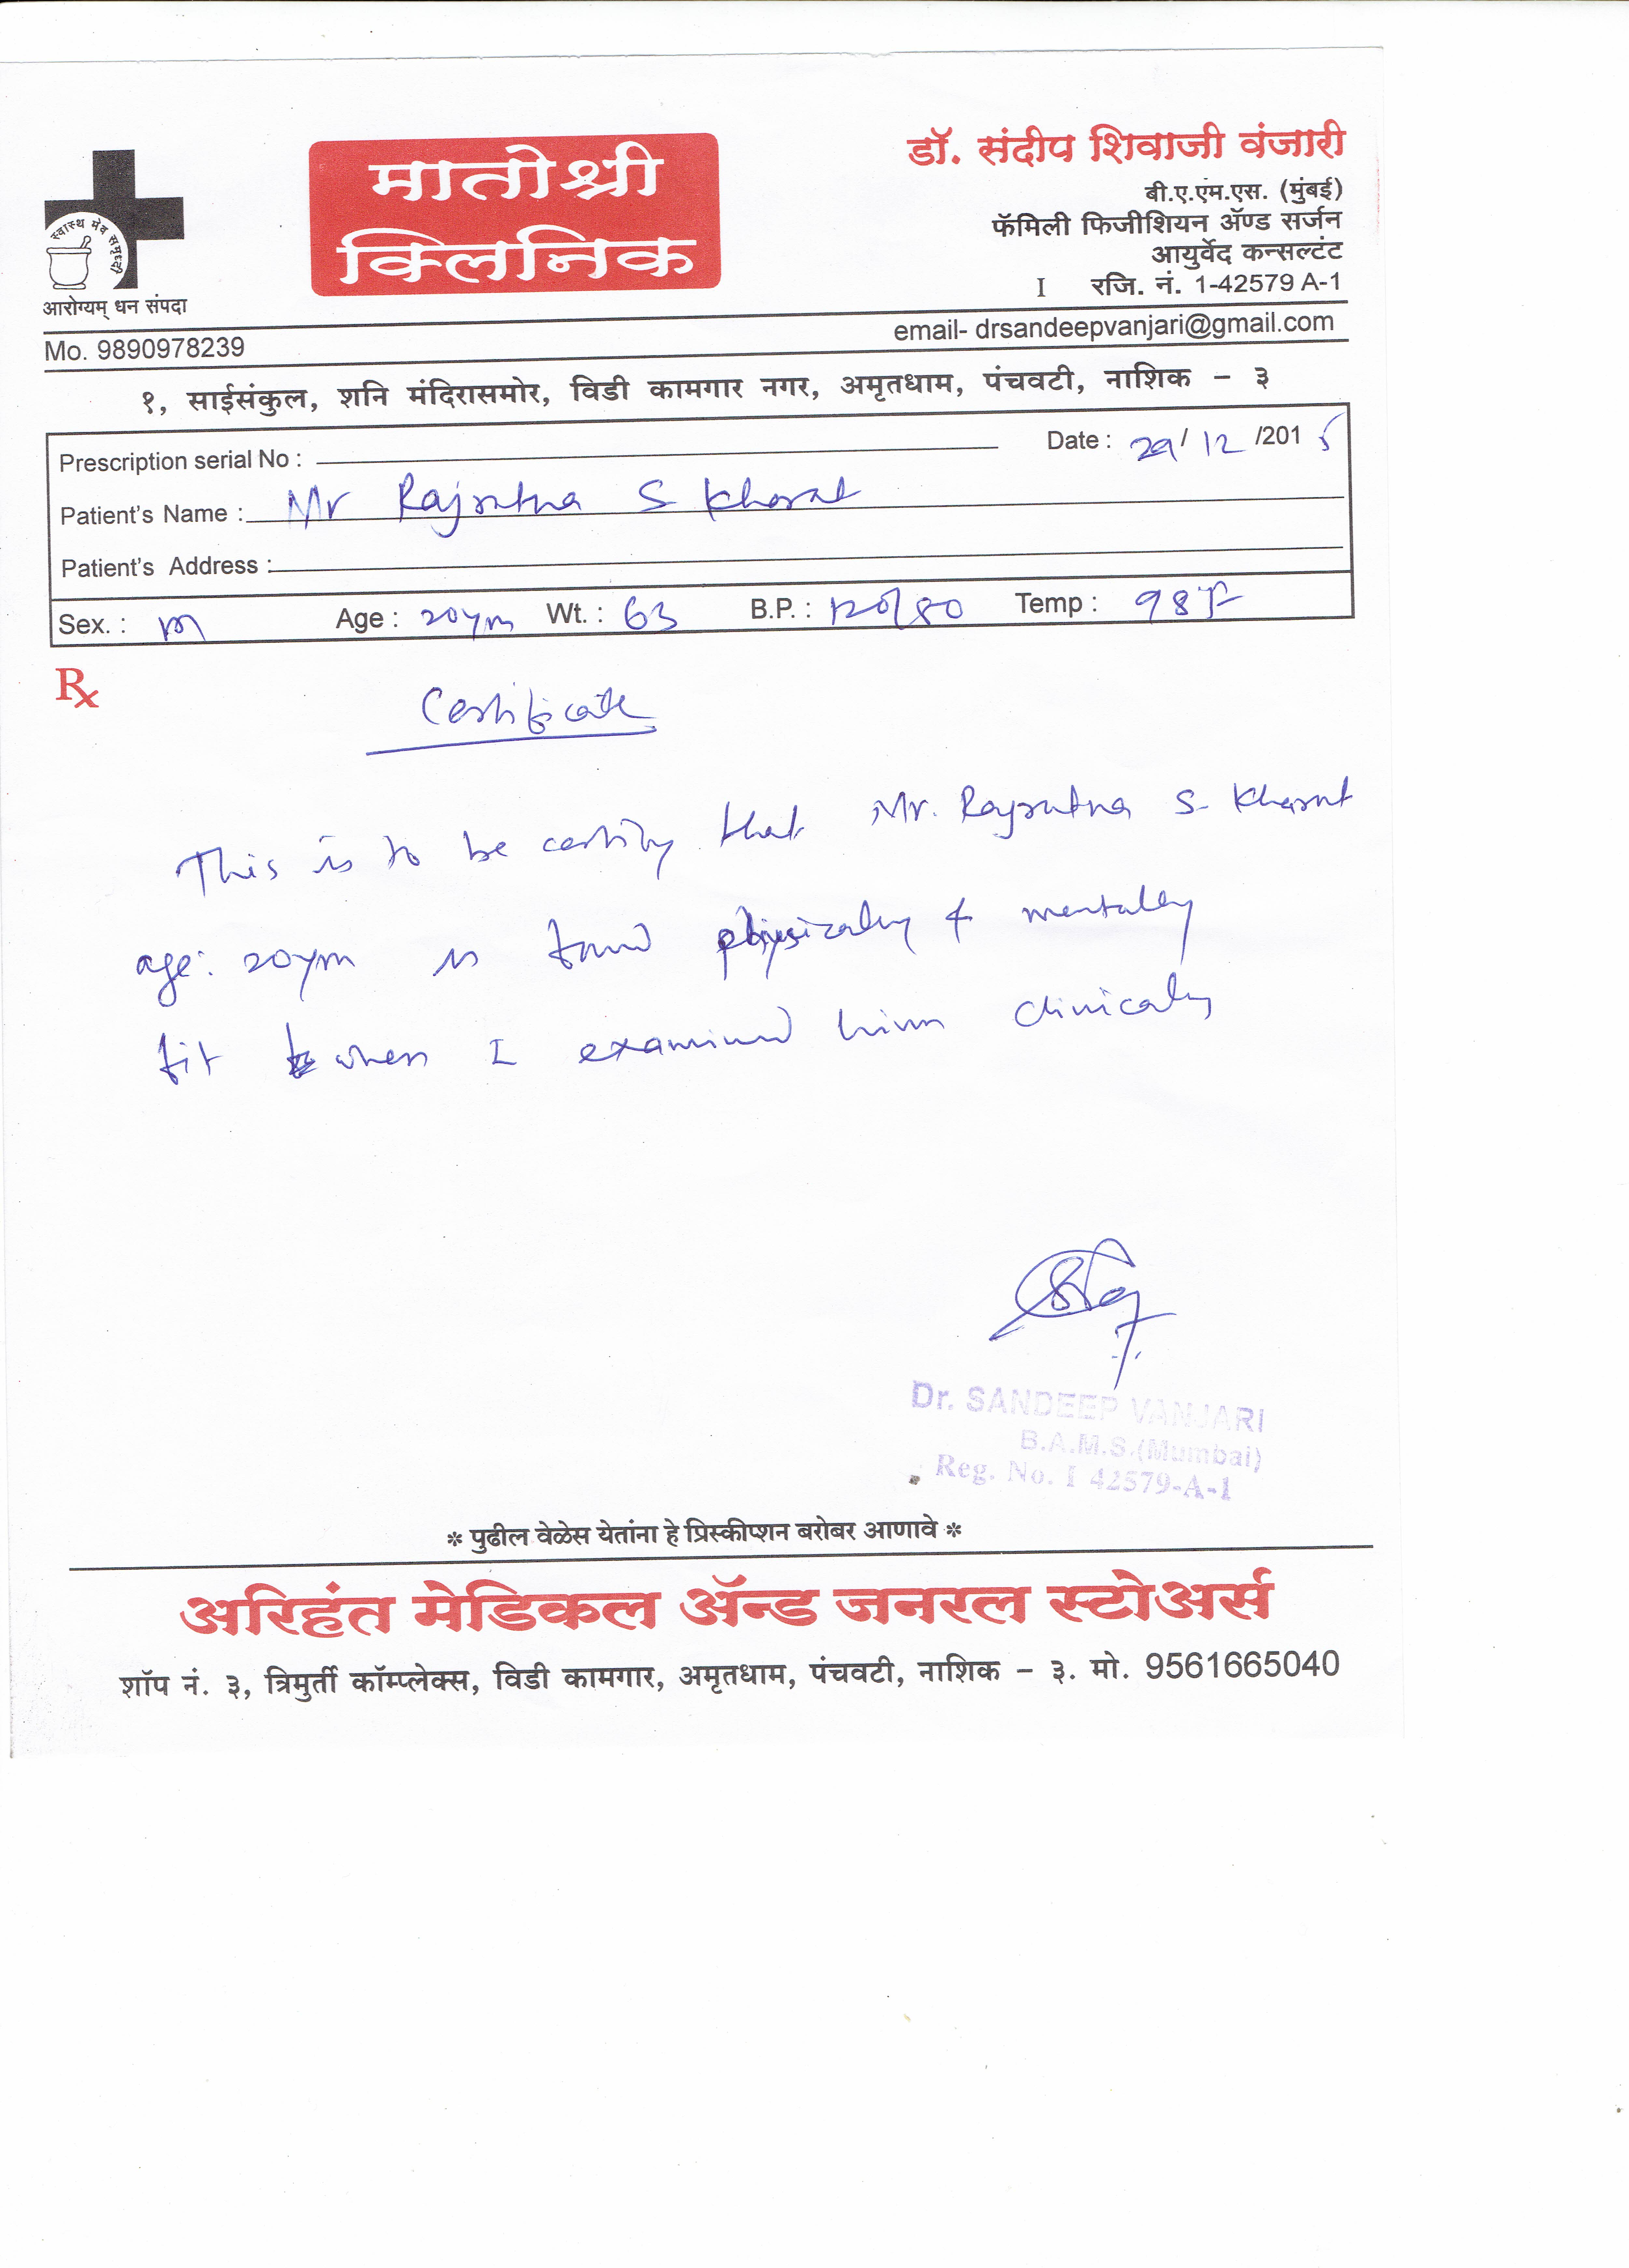 स्वास्थ मेव समृध्दी
आरोग्यम् धन संपदा
मातोश्री
क्लिनिक
डॉ. संदीप शिवाजी वंजारी
बी.ए.एम.एस. (मुंबई)
फॅमिली फिजीशियन ॲण्ड सर्जन
आयुर्वेद कन्सल्टंट
I रजि. नं. 1-42579 A-1
Mo. 9890978239 email- drsandeepvanjari@gmail.com
१, साईसंकुल, शनि मंदिरासमोर, विडी कामगार नगर, अमृतधाम, पंचवटी, नाशिक – ३
Prescription serial No : Date : 29/ 12 /2015
Patient's Name : Mr Rajratna S Kharat
Patient's Address :
Sex. : M Age : 20yrs Wt. : 63 B.P. : 120/80 Temp : 98°F
Rx
Certificate
This is to be certify that Mr. Rajratna S. Kharat
age: 20yrs is found physically & mentally
fit when I examined him clinically
Dr. SANDEEP VANJARI
B.A.M.S.(Mumbai)
Reg. No. I 42579-A-1
* पुढील वेळेस येतांना हे प्रिस्कीप्शन बरोबर आणावे *
अरिहंत मेडिकल ॲन्ड जनरल स्टोअर्स
शॉप नं. ३, त्रिमुर्ती कॉम्प्लेक्स, विडी कामगार, अमृतधाम, पंचवटी, नाशिक – ३. मो. 9561665040